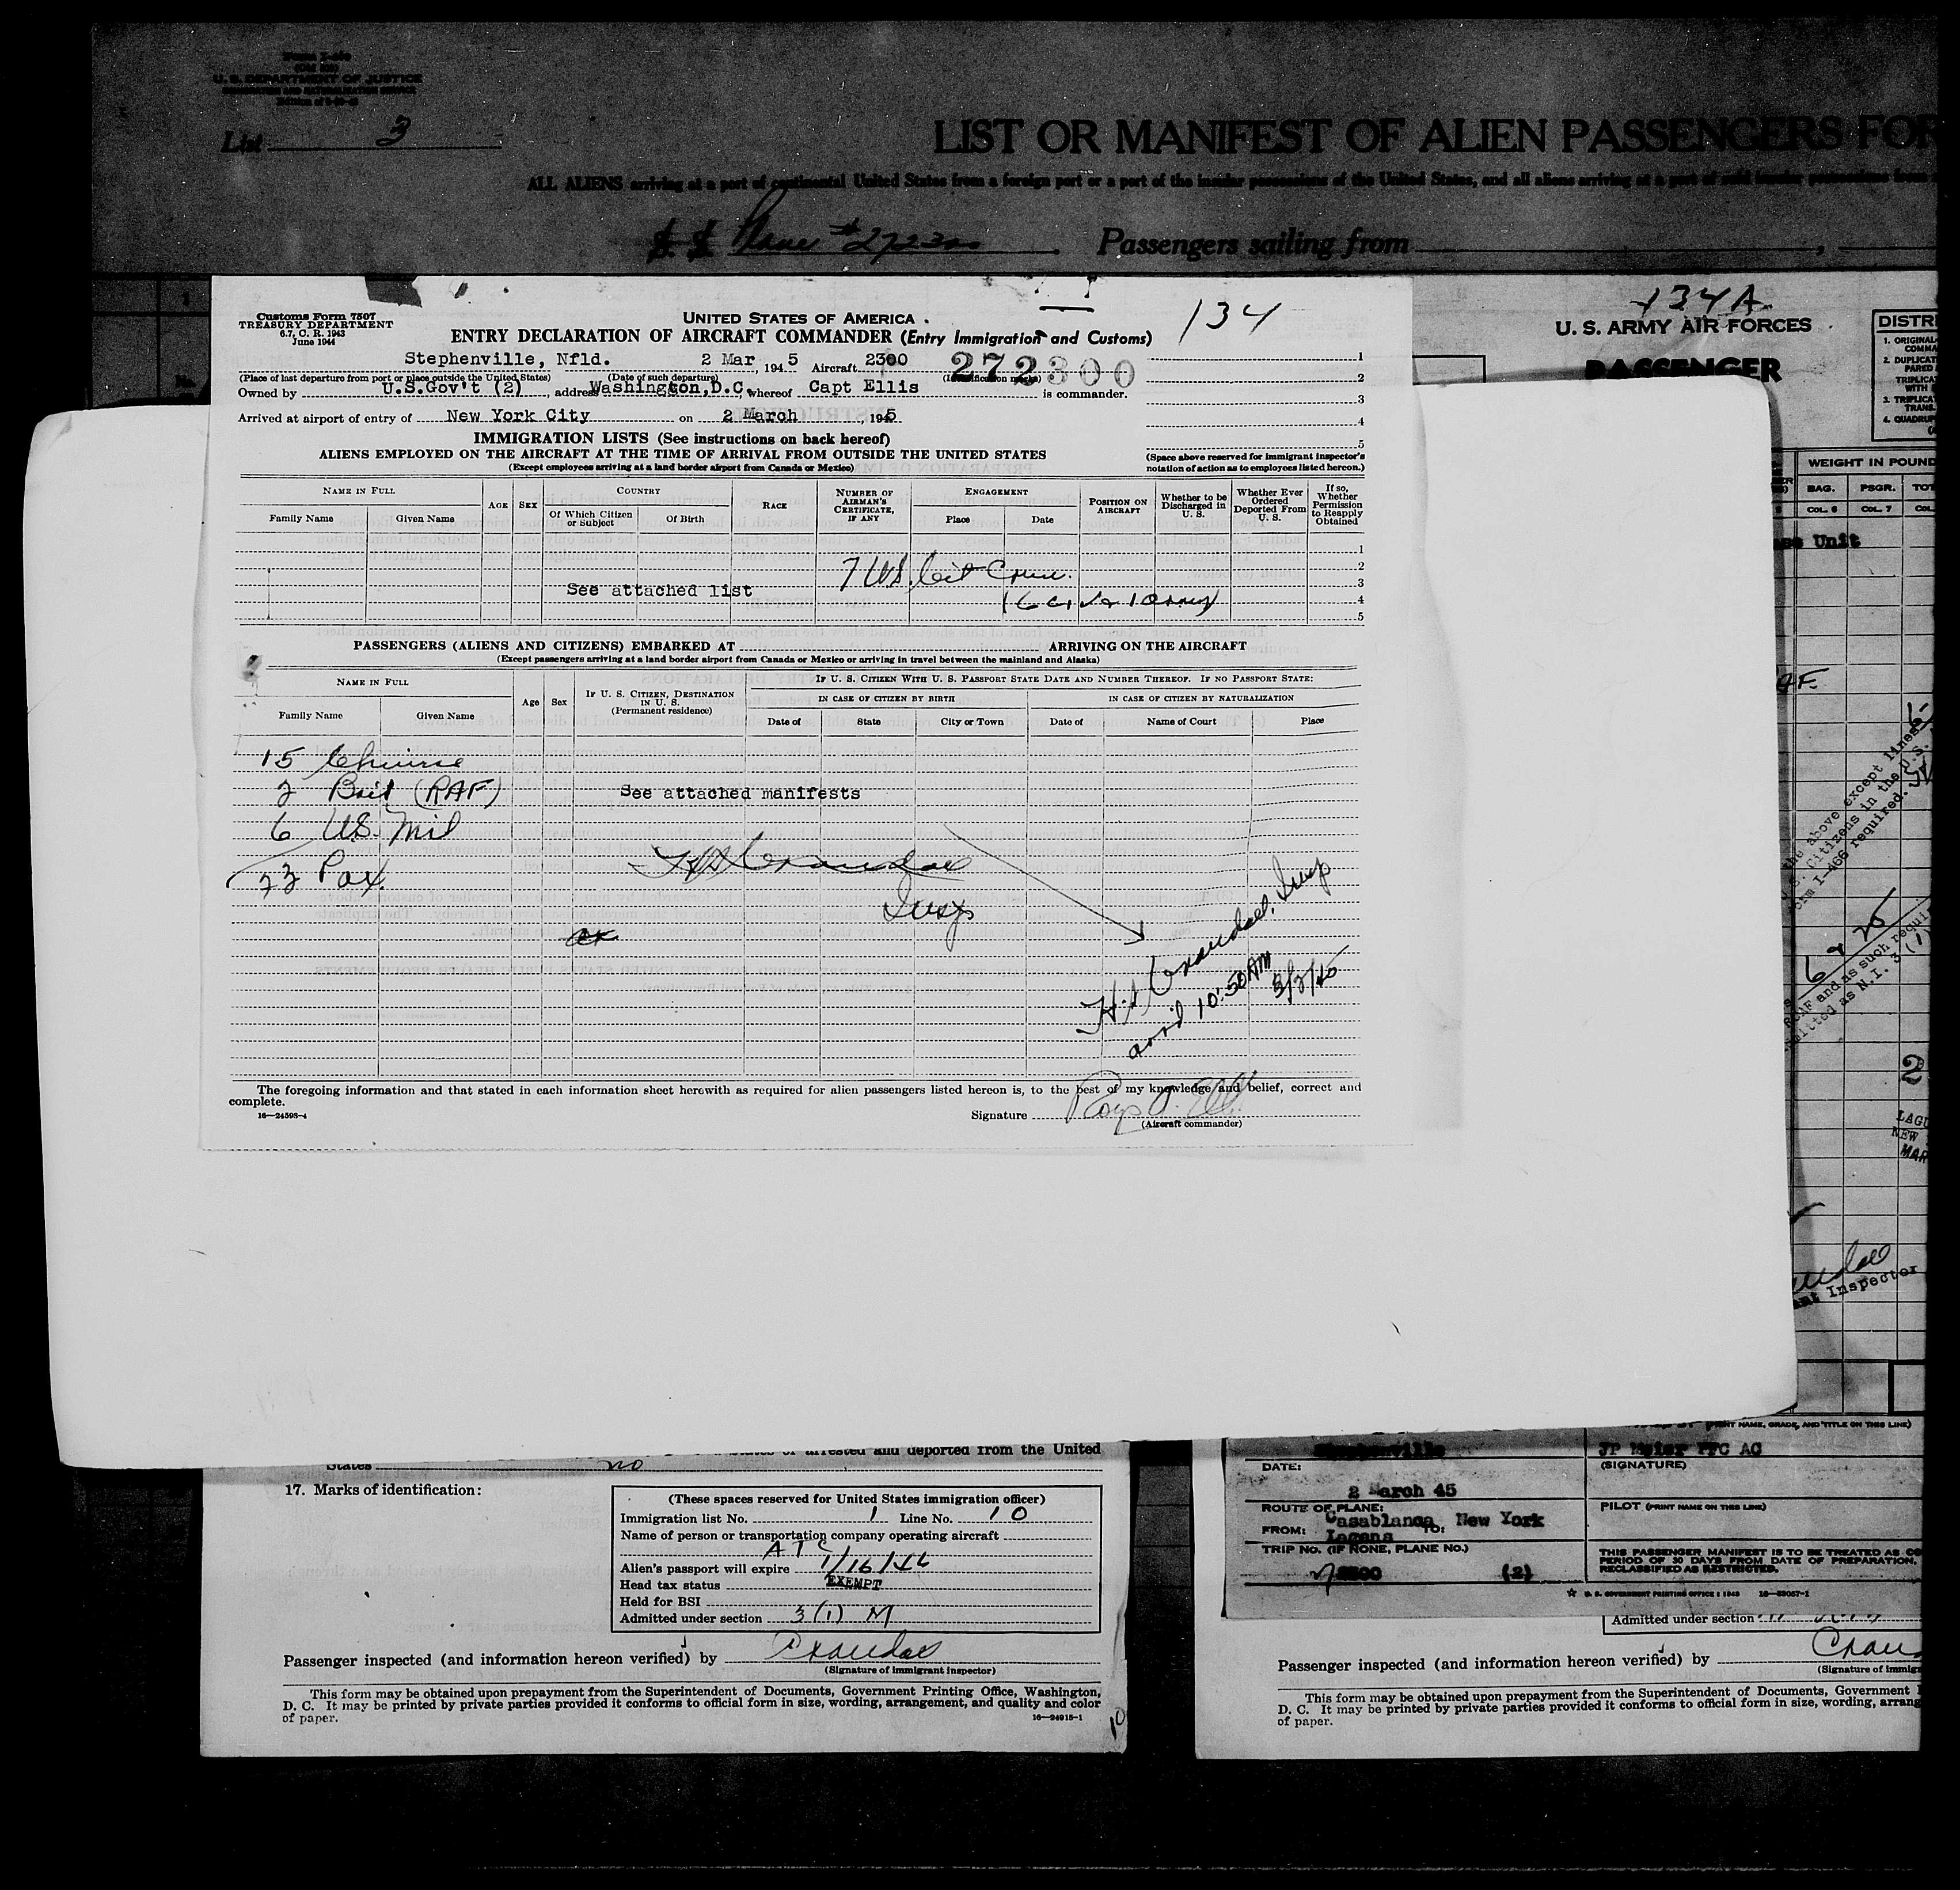 U. S. DEPARTMENT OF JUSTICE
List 3
LIST OR MANIFEST OF ALIEN PASSENGERS FOR
ALL ALIENS arriving at a port of continental United States from a foreign port or a port of the insular possessions of the United States, and all aliens arriving at a port of said insular possessions from
Plane #272300 Passengers sailing from
1
Customs Form 7507
TREASURY DEPARTMENT
6.7, C. R. 1943
June 1944
UNITED STATES OF AMERICA
134
ENTRY DECLARATION OF AIRCRAFT COMMANDER (Entry Immigration and Customs)
Stephenville, Nfld. 2 Mar, 1945 Aircraft 2300 272300
(Place of last departure from port or place outside the United States) (Date of such departure) (Identification marks)
Owned by U.S.Gov't (2), address Washington,D.C., whereof Capt Ellis is commander.
Arrived at airport of entry of New York City on 2 March, 1945
1
2
3
4
5
IMMIGRATION LISTS (See instructions on back hereof)
ALIENS EMPLOYED ON THE AIRCRAFT AT THE TIME OF ARRIVAL FROM OUTSIDE THE UNITED STATES
(Except employees arriving at a land border airport from Canada or Mexico)
(Space above reserved for immigrant inspector's
notation of action as to employees listed hereon.)
NAME IN FULL
Family Name Given Name
AGE SEX
COUNTRY
Of Which Citizen or Subject Of Birth
RACE
NUMBER OF AIRMAN'S CERTIFICATE, IF ANY
ENGAGEMENT
Place Date
POSITION ON AIRCRAFT
Whether to be Discharged in U. S.
Whether Ever Ordered Deported From U. S.
If so, Whether Permission to Reapply Obtained
1
2
3
4
5
7 US. Cit Crew.
See attached list
(6 Civ & 1 Army)
PASSENGERS (ALIENS AND CITIZENS) EMBARKED AT ARRIVING ON THE AIRCRAFT
(Except passengers arriving at a land border airport from Canada or Mexico or arriving in travel between the mainland and Alaska)
NAME IN FULL
Family Name Given Name
Age Sex
IF U. S. CITIZEN, DESTINATION IN U. S.
(Permanent residence)
IF U. S. CITIZEN WITH U. S. PASSPORT STATE DATE AND NUMBER THEREOF. IF NO PASSPORT STATE:
IN CASE OF CITIZEN BY BIRTH IN CASE OF CITIZEN BY NATURALIZATION
Date of State City or Town Date of Name of Court Place
15 Chinese
2 Brit (RAF)
See attached manifests
6 US. Mil
23 Pax.
Insp
Crandall, Insp
arrd 10:50AM 3/2/45
The foregoing information and that stated in each information sheet herewith as required for alien passengers listed hereon is, to the best of my knowledge and belief, correct and
complete.
16—24598-4
Signature
(Aircraft commander)
134A
U. S. ARMY AIR FORCES
PASSENGER
DISTRI
1. ORIGINAL
COMMA
2. DUPLICATE
PARED
TRIPLICA
WITH
3. TRIPLICA
TRANS.
4. QUADRUP
WEIGHT IN POUND
BAG. PSGR. TOT
COL. 6 COL. 7 COL.
Unit
the above except lines
U.S. Citizens in the U.S.
Form I-466 required.
RCAF and as such requi
admitted as N.I. 3 (1)
2
LAGU
NEW
MAR
Inspector
States or arrested and deported from the United
States no
17. Marks of identification:
(These spaces reserved for United States immigration officer)
Immigration list No. 1 Line No. 10
Name of person or transportation company operating aircraft
ATC
Alien's passport will expire 1/16/46
Head tax status EXEMPT
Held for BSI
Admitted under section 3(1) M
Passenger inspected (and information hereon verified) by Crandall
(Signature of immigrant inspector)
This form may be obtained upon prepayment from the Superintendent of Documents, Government Printing Office, Washington,
D. C. It may be printed by private parties provided it conforms to official form in size, wording, arrangement, and quality and color
of paper.
16—24915-1
10
(PRINT NAME, GRADE, AND TITLE ON THIS LINE)
Stephenville
JP Meier PFC AC
DATE:
(SIGNATURE)
2 March 45
ROUTE OF PLANE:
PILOT (PRINT NAME ON THIS LINE)
FROM: Casablanca TO: New York
Lagens
TRIP No. (IF NONE, PLANE NO.)
2300 (2)
THIS PASSENGER MANIFEST IS TO BE TREATED AS CO
PERIOD OF 30 DAYS FROM DATE OF PREPARATION,
RECLASSIFIED AS RESTRICTED.
☆ U. S. GOVERNMENT PRINTING OFFICE : 1943 16—33057-1
Admitted under section
Passenger inspected (and information hereon verified) by Cran
(Signature of immigr
This form may be obtained upon prepayment from the Superintendent of Documents, Government
D. C. It may be printed by private parties provided it conforms to official form in size, wording, arrang
of paper.